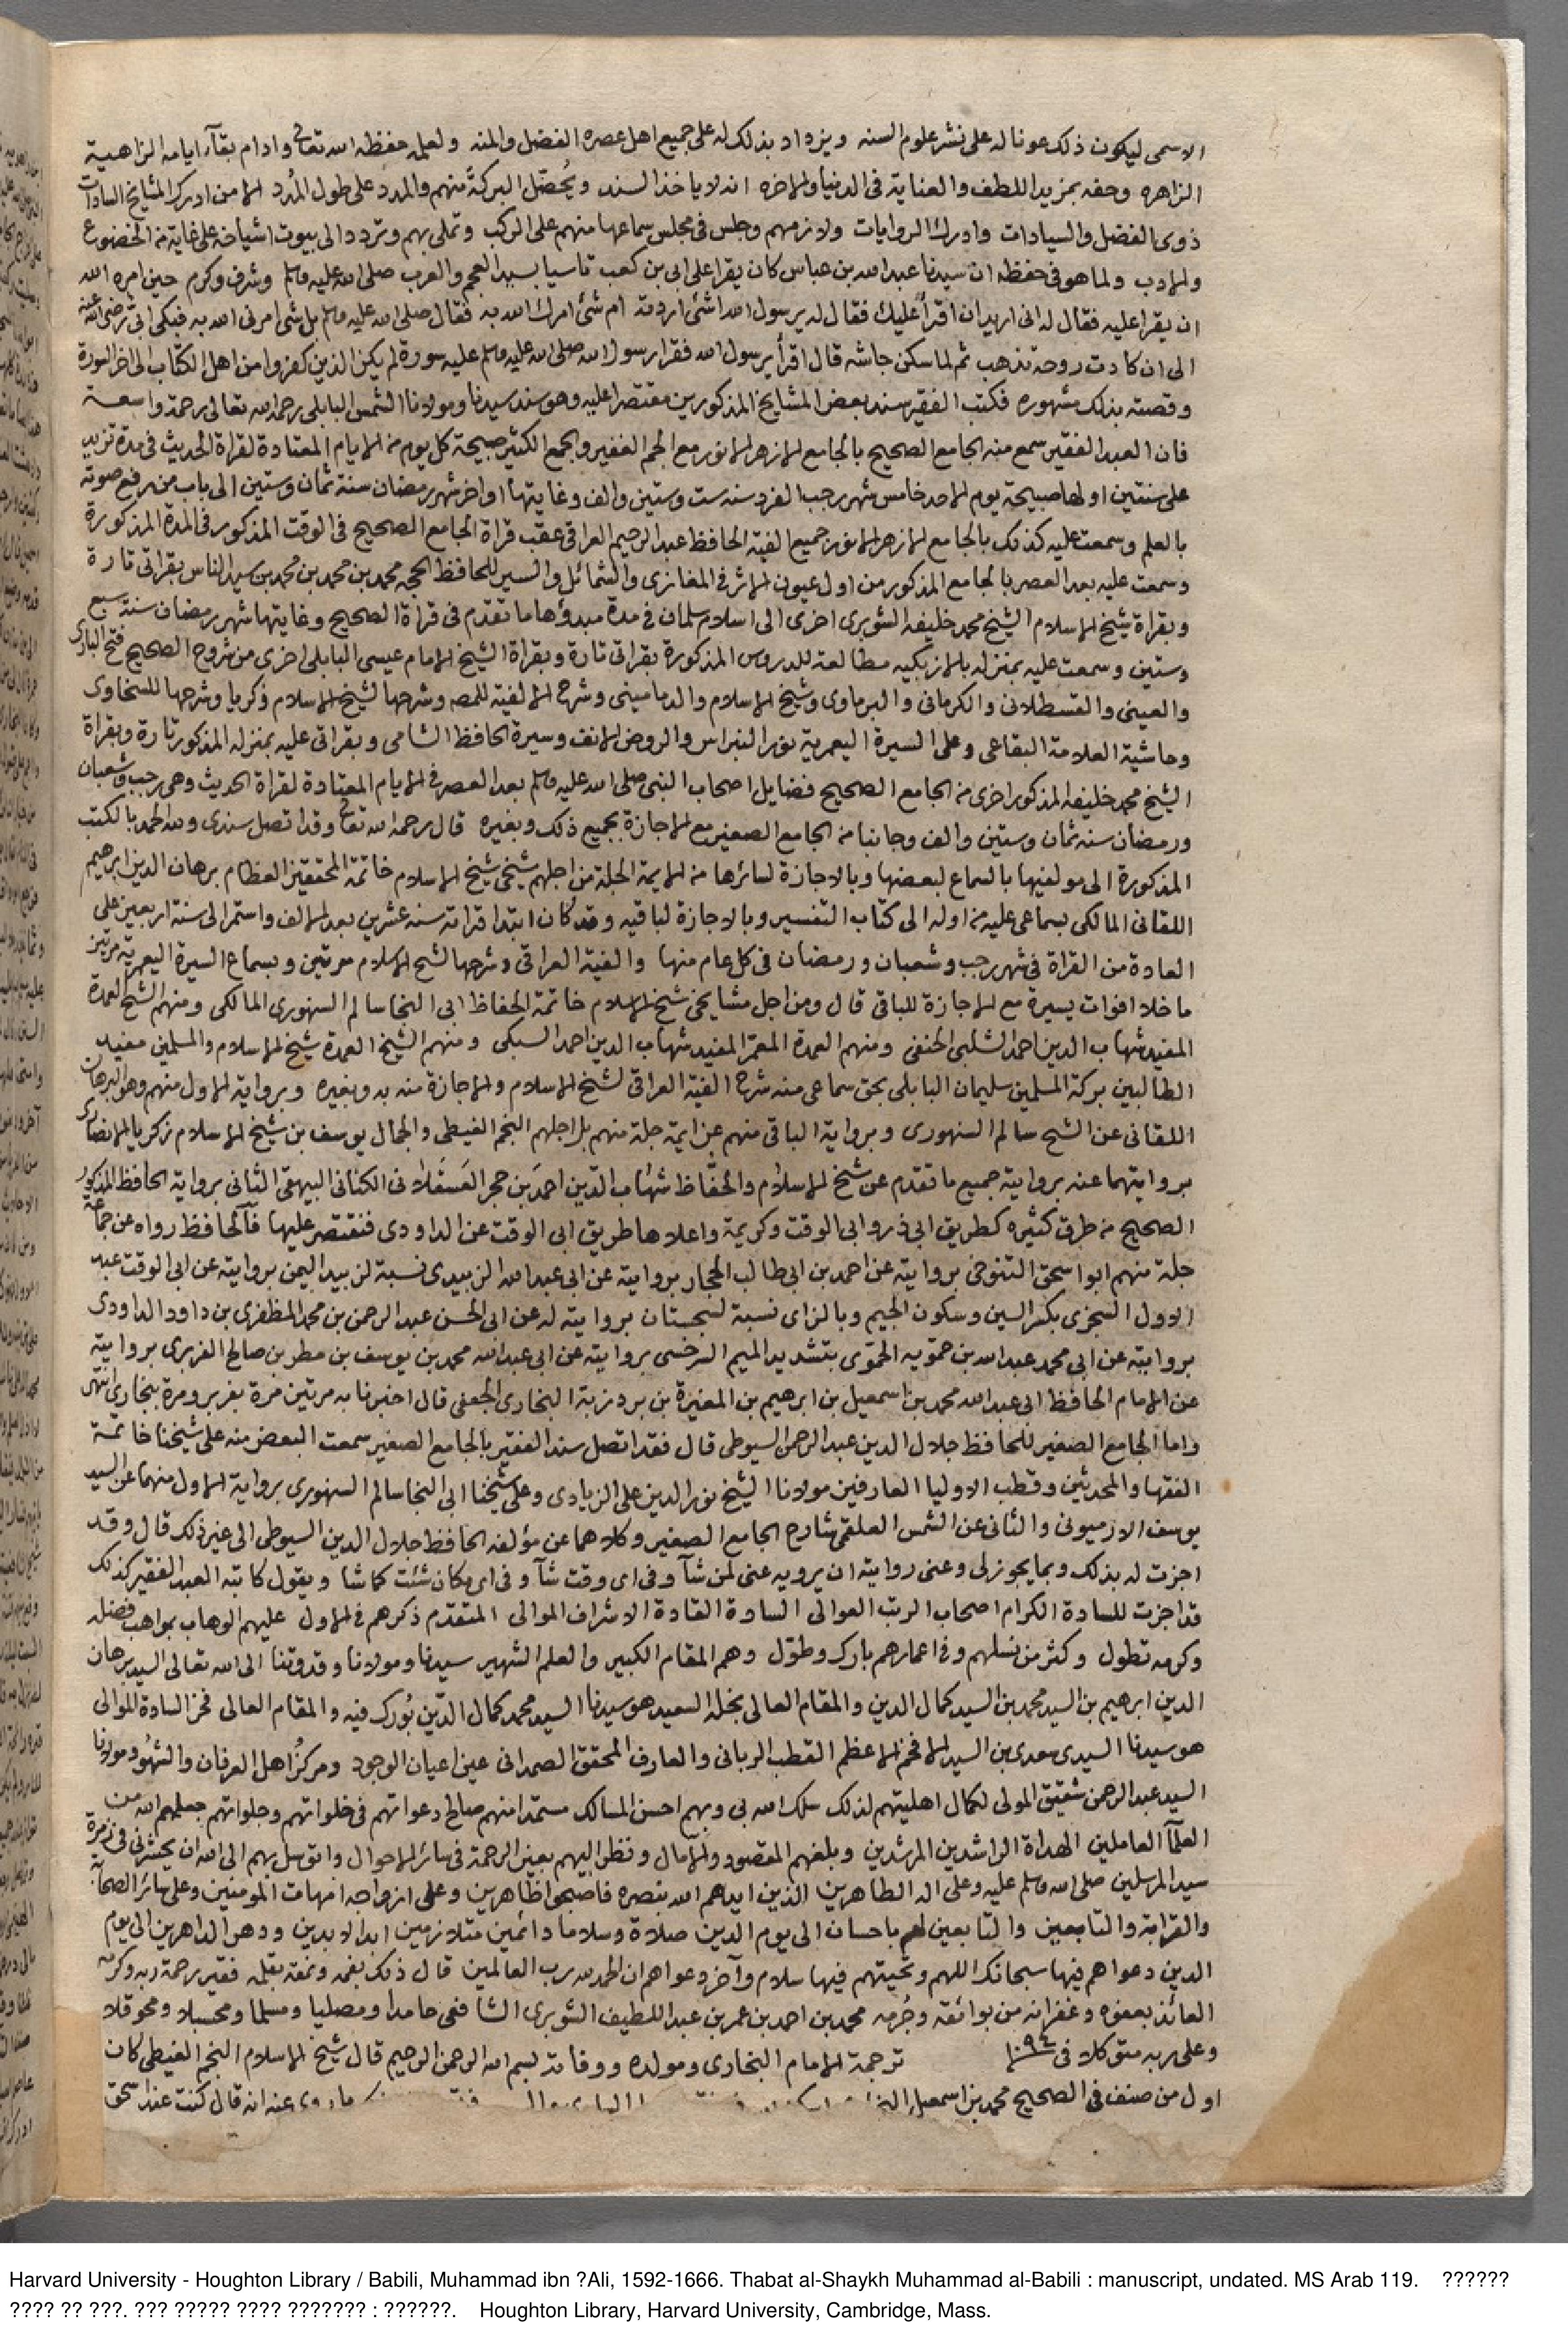 الاسمى ليكون ذلك عونا له على نشر علوم السنه ويزداد بذلك له على جميع اهل عصره الفضل والمنه ولعلمه حفظه الله تعالى وادام بقآء ايامه الزاهية
الزاهره وحفه بمزيد اللطف والعناية في الدنيا والاخره انه لا ياخذ السند ويُحصّل البركة منهم والمدد على طول المُدد الا من ادرك المشايخ السادات
ذوى الفضل والسيادات وادرك الروايات ولازمهم وجلس في مجلس سماعها منهم على الركب وتملى بهم وتردد الى بيوت اشياخه على غاية من الخضوع
والادب ولما هو في حفظه ان سيدنا عبد الله بن عباس كان يقرا على ابى بن كعب تاسيا بسيد العجم والعرب صلى الله عليه وسلم وشرف وكرم حين امره الله
ان يقرا عليه فقال له انى اريد ان اقرأ عليك فقال له يرسول الله اشئ اردته ام شئ امرك الله به فقال صلى الله عليه وسلم بل شئ امرنى الله به فبكى ابى رضى الله عنه
الى ان كادت روحه تذهب ثم لما سكن جاشه قال اقرأ يرسول الله فقرا رسول الله صلى الله عليه وسلم عليه سورة لم يكن الذين كفروا من اهل الكتاب الى اخر السورة
وقصته بذلك مشهوره فكتب الفقير سند بعض المشايخ المذكورين مقتصرا عليه وهو سند سيدنا ومولانا الشمس البابلى رحمه الله تعالى رحمة واسعة
فان العبد الفقير سمع منه الجامع الصحيح بالجامع الازهر الانور مع الجم الغفير والجمع الكثير صبيحة كل يوم من الايام المعتادة لقراة الحديث في مدة تزيد
على سنتين اولها صبيحة يوم الاحد خامس شهر رجب الفرد سنه ست وستين والف وغايتها اواخر شهر رمضان سنة ثمان وستين الى باب من رفع صوته
بالعلم وسمعت عليه كذلك بالجامع الازهر الانور جميع الفية الحافظ عبد الرحيم العراقى عقب قراة الجامع الصحيح في الوقت المذكور في المدة المذكورة
وسمعت عليه بعد العصر بالجامع المذكور من اول عيون الاثر في المغازى والشمائل والسير للحافظ الحجه محمد بن محمد بن محمد بن سيد الناس بقراتى تارة
وبقراة شيخ الاسلام الشيخ محمد خليفه الشوبرى اخرى الى اسلام سلمان في مدة مبدؤها ما تقدم في قراة الصحيح وغايتها شهر رمضان سنة سبع
وستين وسمعت عليه بمنزله بالازبكيه مطالعة للدروس المذكورة بقراتى تارة وبقراة الشيخ الامام عيسى البابلى اخرى من شروح الصحيح فتح البارى
والعينى والقسطلانى والكرمانى والبرماوى وشيخ الاسلام والدمامينى وشرح الالفية للمصه وشرحها لشيخ الاسلام ذكريا وشرحها للسخاوى
وحاشية العلامة البقاعى وعلى السيرة اليعمرية نور النبراس والروض الانف وسيرة الحافظ الشامى وبقراتى عليه بمنزله المذكور تارة وبقراة
الشيخ محمد خليفه المذكور اخرى من الجامع الصحيح فضايل اصحاب النبى صلى الله عليه وسلم بعد العصر في الايام المعتادة لقراة الحديث وهى رجب وشعبان
ورمضان سنه ثمان وستين والف وجانبا من الجامع الصغير مع الاجازة بجميع ذلك وبغيره قال رحمه الله تعالى وقد اتصل سندى ولله الحمد بالكتب
المذكورة الى مولفيها بالسماع لبعضها وبالاجازة لسائرها من الايمة الجلة من اجلهم شيخى شيخ الاسلام خاتمة المحققين العظام برهان الدين ابرهيم
اللقانى المالكى بسماعى عليه من اوله الى كتاب التفسير وبالاجازة لباقيه وقد كان ابتدا قراته سنه عشرين بعد الالف واستمر الى سنة اربعين على
العادة من القراة في شهر رجب وشعبان ورمضان في كل عام منها والفية العراقى وشرحها لشيخ الاسلام مرتين وبسماع السيرة اليعمرية مرتين
ما خلا افوات يسيرة مع الاجازة للباقى قال ومن اجل مشايخى شيخ الاسلام خاتمة الحفاظ ابى النجا سالم السنهورى المالكى ومنهم الشيخ العمدة
المفيد شهاب الدين احمد الشلبى الحنفى ومنهم العمدة المعمّر المفيد شهاب الدين احمد السبكى ومنهم الشيخ العمدة شيخ الاسلام والمسلمين مفيد
الطالبين بركة المسلمين سليمان البابلى بحق سماعى منه شرح الفية العراقى لشيخ الاسلام والاجازة منه به وبغيره وبرواية الاول منهم وهو البرهان
اللقانى عن الشيخ سالم السنهورى وبرواية الباقى منهم عن ايمة جلة منهم بل اجلهم النجم الغيطى والجمال يوسف بن شيخ الاسلام زكريا الانصارى
بروايتهما عنه بروايته جميع ما تقدم عن شيخ الاسلام والحفّاظ شهاب الدين احمد بن حجر العَسقَلانى الكنانى البيهقى الثانى برواية الحافظ المذكور
الصحيح من طرق كثيره كطريق ابى ذر وابى الوقت وكريمة واعلاها طريق ابى الوقت عن الداودى فنقتصر عليها فالحافظ رواه عن جماعة
جلة منهم ابو اسحق التنوخى بروايته عن احمد بن ابى طالب الحجار بروايته عن ابى عبد الله الزبيدى نسبة لزبيد اليمن بروايته عن ابى الوقت عبد
الاوول السجزى بكسر السين وسكون الجيم وبالزاى نسبة لسجستان بروايته له عن ابى الحسن عبد الرحمن بن محمد المظفرى بن داود الداودى
بروايته عن ابى محمد عبد الله بن حمّويه الحمّوى بتشديد الميم السرخسى بروايته عن ابى عبد الله محمد بن يوسف بن مطر بن صالح الفربرى بروايته
عن الامام الحافظ ابى عبد الله محمد بن اسمعيل بن ابرهيم بن المغيرة بن بردزبة البخارى الجعفى قال اخبرنا به مرتين مرة بفربر ومرة ببخارى انتهى
واما الجامع الصغير للحافظ جلال الدين عبد الرحمن السيوطى قال فقد اتصل سند الفقير بالجامع الصغير سمعت البعض منه على شيخنا خاتمة
الفقها والمحدثين وقطب الاوليا العارفين مولانا الشيخ نور الدين على الزيادى وعلى شيخنا ابى النجا سالم السنهورى برواية الاول منهما عن السيد
يوسف الارميونى والثانى عن الشمس العلقمى شارح الجامع الصغير وكلاهما عن مؤلفه الحافظ جلال الدين السيوطى الى غير ذلك قال وقد
اجزت له بذلك وبما يجوز لى وعنى روايته ان يرويه عنى لمن شآ وفى اى وقت شآ وفى اى مكان شئت كما شا ويقول كاتبه العبد الفقير كذلك
قد اجزت للسادة الكرام اصحاب الرتب العوالى السادة القادة الاشراف الموالى المتقدم ذكرهم في الاول عليهم الوهاب بمواهب فضله
وكرمه تطول وكثر من نسلهم وفى اعمارهم بارك وطوّل وهم المقام الكبير والعلم الشهير سيدنا ومولانا وقدوتنا الى الله تعالى السيد برهان
الدين ابرهيم بن السيد محمد بن السيد كمال الدين والمقام العالى نجله السعيد هو سيدنا السيد محمد كمال الدّين بُورك فيه والمقام العالى فخر السادة الموالى
هو سيدنا السيدى سعدى بن السيد الافخم الاعظم القطب الربانى والعارف المحقق الصمدانى عين اعيان الوجود ومركزُ اهل العرفان والشهُود مولانا
السيد عبد الرحمن شقيق المولى لكمال اهليتهم لذلك سلك الله بى وبهم احسن المسالك مستمدا منهم صالح دعواتهم في خلواتهم وجلواتهم جعلهم الله من
العلمآ العاملين الهداة الراشدين المرشدين وبلغهم المقصود والآمال ونظر اليهم بعين الرحمة في سائر الاحوال واتوسل بهم الى الله ان يحشرنى في زمرة
سيد المرسلين صلى الله وسلم عليه وعلى اله الطاهرين الذين ايدهم الله بنصره فاصبحوا ظاهرين وعلى ازواجه امهات المومنين وعلى سائر الصحابة
والقرابة والتابعين والتابعين لهم باحسان الى يوم الدين صلاة وسلاما دائمين متلازمين ابد الابدين ودهر الداهرين الى يوم
الدين دعواهم فيها سبحانك اللهم وتحيتهم فيها سلام وآخر دعواهم ان الحمد لله رب العالمين قال ذلك بفمه ونمقه بقلمه فقير رحمة ربه وكرمه
العائذ بعفوه وغفرانه من بوائقه وجُرمه محمد بن احمد بن عمر بن عبد اللطيف الشوبرى الشافعى حامدا ومصليا ومسلما ومحسبلا ومحوقلا
وعلى ربه متوكلا في ١٠٩٤ ترجمة الامام البخارى ومولده ووفاته بسم الله الرحمن الرحيم قال شيخ الاسلام النجم الغيطى كان
اول من صنف في الصحيح محمد بن اسمعيل روى عنه انه قال كنت عند اسحق
Harvard University - Houghton Library / Babili, Muhammad ibn ?Ali, 1592-1666. Thabat al-Shaykh Muhammad al-Babili : manuscript, undated. MS Arab 119. ??????
???? ?? ???. ??? ????? ???? ??????? : ??????. Houghton Library, Harvard University, Cambridge, Mass.